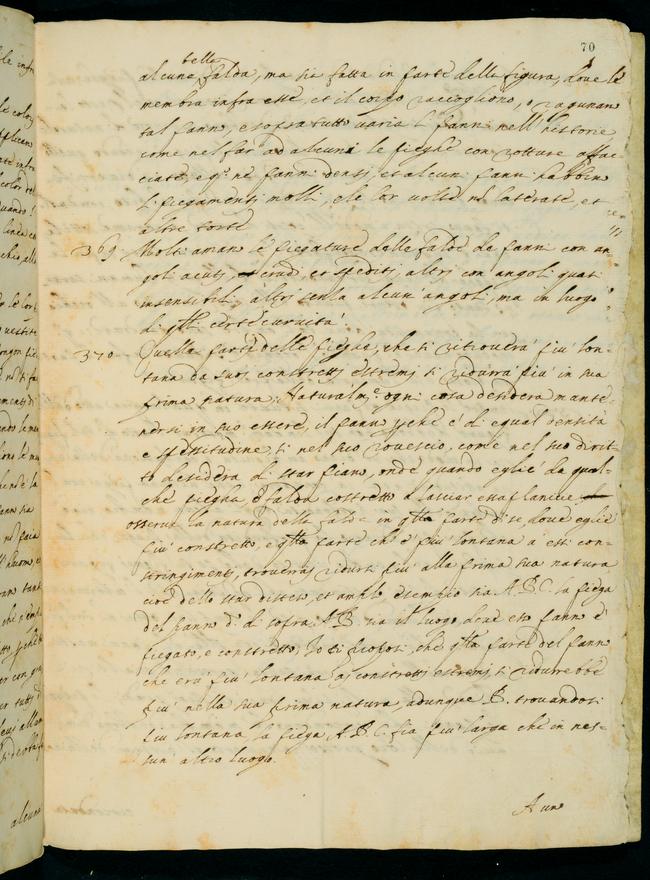 70
bella
alcune falda, ma sia fatta in parte della figura, dove le
membra infra esse, et il corpo raccogliono, o ragunano
tal panno, e sopra tutto varia li panni nell'historie
come nel far ad alcuni le pieghe con rotture affac-
ciate, e q.º ne panni densi, et alcuni panni habbino
li piegamenti molli, e le lor volte nō laterate, et
torte
369. Molti amano le piegature delle falde de panni con an-
goli acuti, crudi, et spediti; altri con angoli quasi
insensibili, altri senza alcuni angoli, ma in luogo
di q̄lli certe curvità.
370 Quella parte delle pieghe, che si ritroverà piu lon-
tana da suoi constretti estremi si ridurà piu in sua
prima natura. Naturalm.e ogni cosa desidera mante-
nersi in suo essere, il panno perche è di egual densità
e spessitudine, si nel suo rovescio, come nel suo drit-
to desidera di star piano, onde quando eglie da qual-
che piegha, o falda costretto à lasciar essa planicie
osserva la natura della falda in q̄lla parte di se dove eglie
piu constretto, e q̄lla parte ch'è piu lontana à essi con-
stringimenti, troverai ridursi piu alla prima sua natura
cioè dello star disteso, et amplo. esempio sia A.B.C. la piega
del panno d. di sopra, A.B. sia il luogo dove esso panno è
piegato, e constretto, io ti proposi, che q̄lla parte del panno
che era piu lontana à constretti estremi si ridurrebbe
piu nella sua prima natura, adunque B. trovandosi
piu lontana la piega A.B.C. fia piu larga che in nes-
sun altro luogo.
A uno